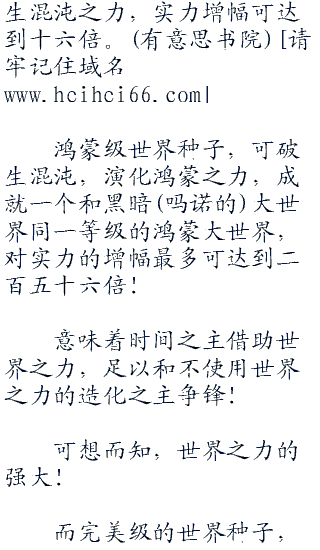 生混沌之力，实力增幅可达
到十六倍。(有意思书院)[请
牢记住域名
www.hcihci66.com|
鸿蒙级世界种子，可破
生混沌，演化鸿蒙之力，成
就一个和黑暗(吗诺的)大世
界同一等级的鸿蒙大世界，
对实力的增幅最多可达到二
百五十六倍！
意味着时间之主借助世
界之力，足以和不使用世界
之力的造化之主争锋！
可想而知，世界之力的
强大！
而完美级的世界种子，